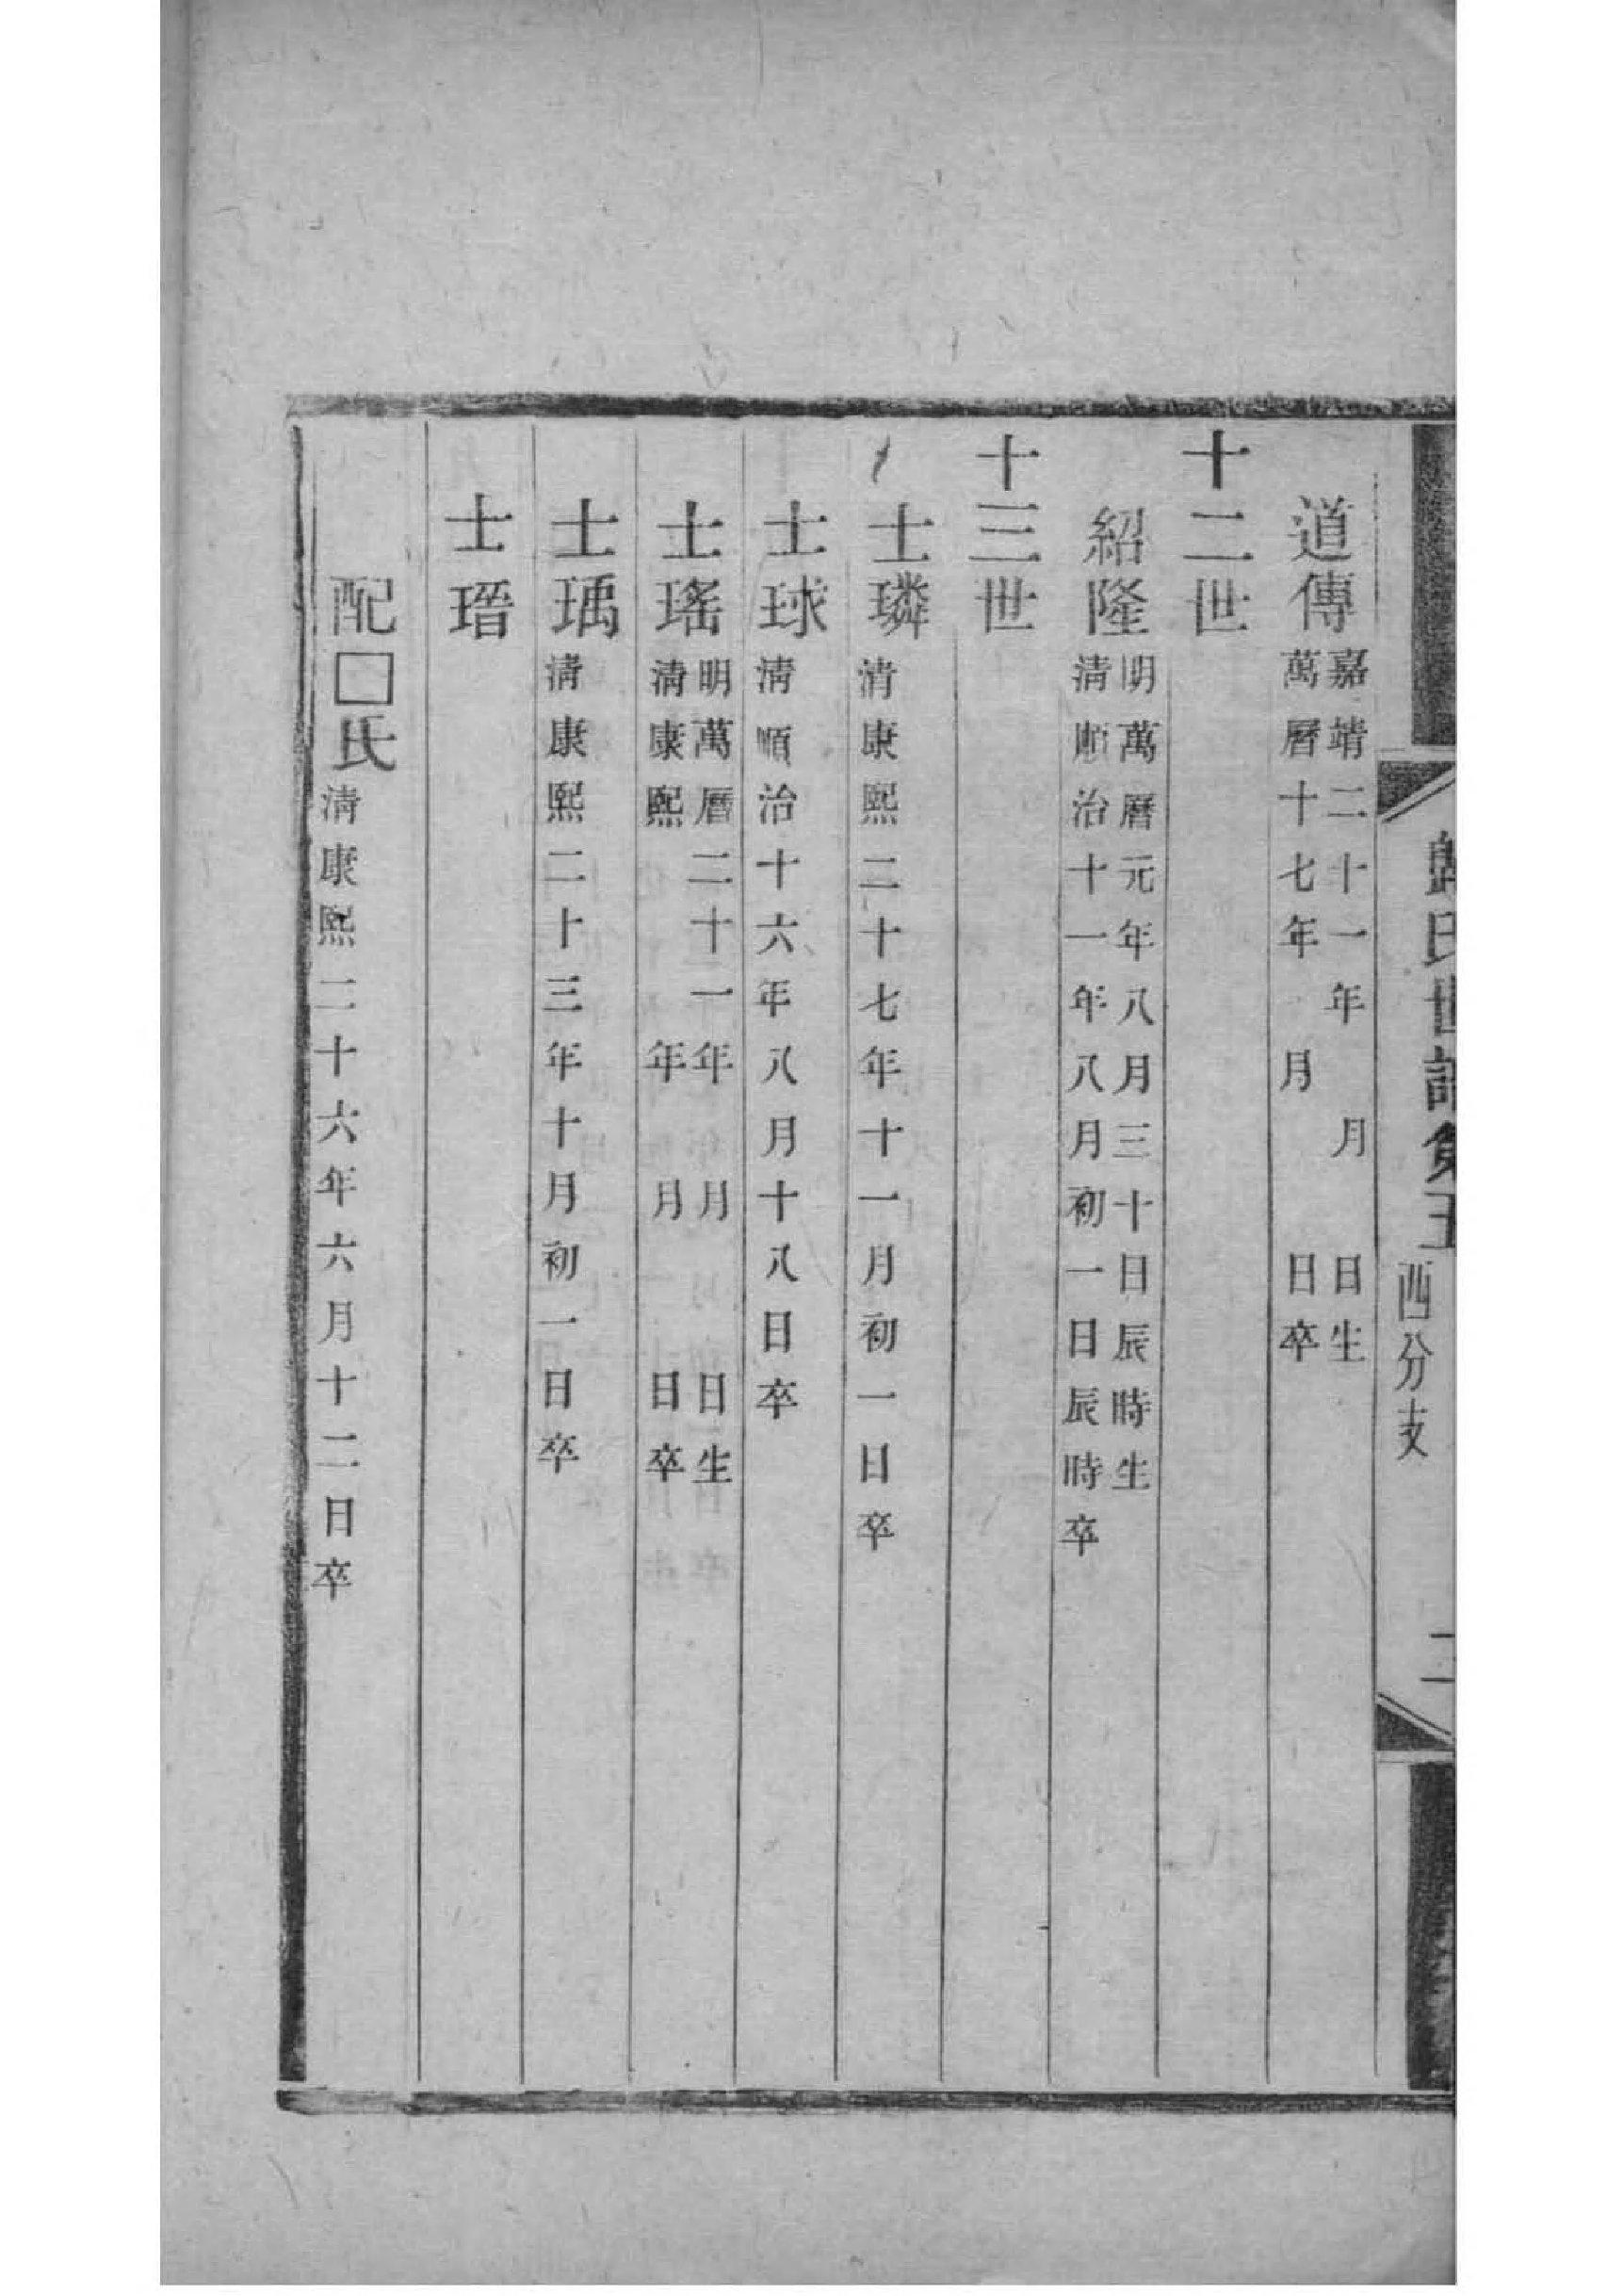 氏世譜
西分支
二
道傳
嘉靖二十一年　月　日生
萬曆十七年　月　日卒
十二世
紹隆
明萬曆元年八月三十日辰時生
清順治十一年八月初一日辰時卒
十三世
士璘
清康熙二十七年十一月初一日卒
士球
清順治十六年八月十八日卒
士瑤
明萬曆二十一年　月　日生
清康熙　年　月　日卒
士瑀
清康熙二十三年十月初一日卒
士瑨
配□氏
清康熙二十六年六月十二日卒